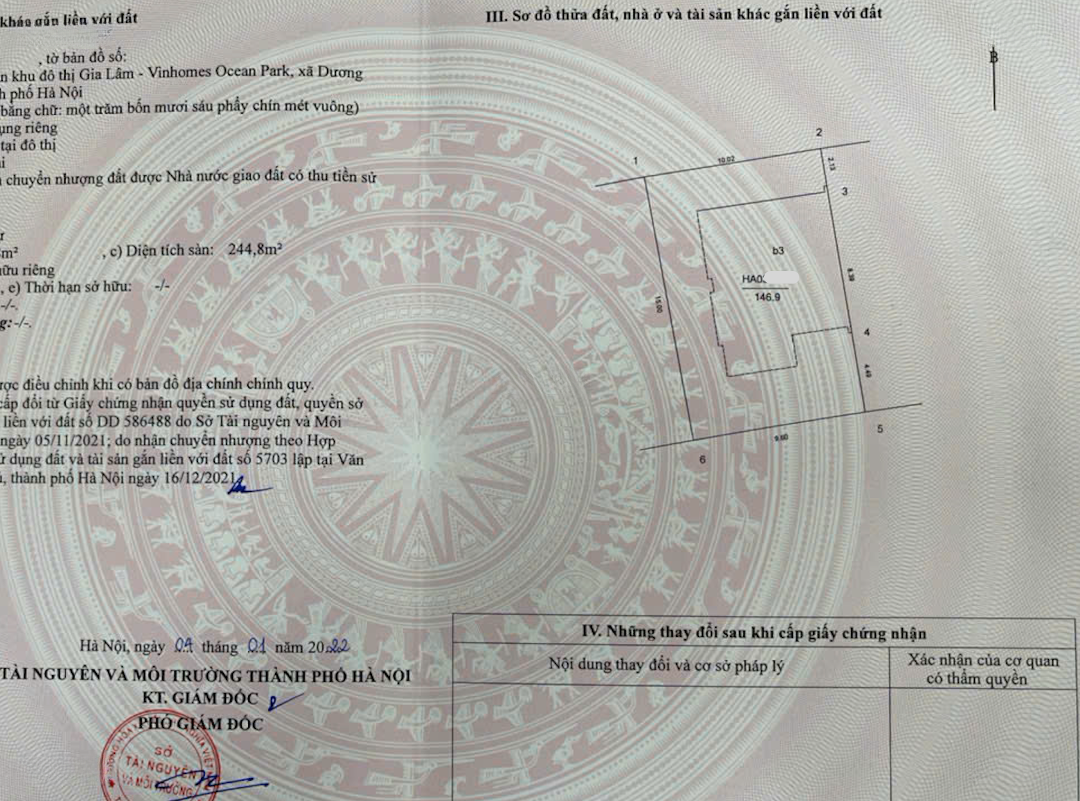 khác gắn liền với đất
, tờ bản đồ số:
n khu đô thị Gia Lâm - Vinhomes Ocean Park, xã Dương
h phố Hà Nội
bằng chữ: một trăm bốn mươi sáu phẩy chín mét vuông)
ụng riêng
tại đô thị
i
chuyển nhượng đất được Nhà nước giao đất có thu tiền sử
m² , c) Diện tích sàn: 244,8m²
hữu riêng
, e) Thời hạn sở hữu: -/-
-/-.
g:-/-.
ược điều chỉnh khi có bản đồ địa chính chính quy.
cấp đổi từ Giấy chứng nhận quyền sử dụng đất, quyền sở
liền với đất số DD 586488 do Sở Tài nguyên và Môi
ngày 05/11/2021; do nhận chuyển nhượng theo Hợp
ử dụng đất và tài sản gắn liền với đất số 5703 lập tại Văn
, thành phố Hà Nội ngày 16/12/2021
Hà Nội, ngày 04 tháng 01 năm 2022
TÀI NGUYÊN VÀ MÔI TRƯỜNG THÀNH PHỐ HÀ NỘI
KT. GIÁM ĐỐC
PHÓ GIÁM ĐỐC
SỞ
TÀI NGUYÊN
VÀ MÔI TRƯỜNG
III. Sơ đồ thửa đất, nhà ở và tài sản khác gắn liền với đất
B
1
10.02
2
2.13
3
b3
HA0
146.9
15.00
8.39
4
4.49
5
9.60
6
IV. Những thay đổi sau khi cấp giấy chứng nhận
Nội dung thay đổi và cơ sở pháp lý
Xác nhận của cơ quan
có thẩm quyền